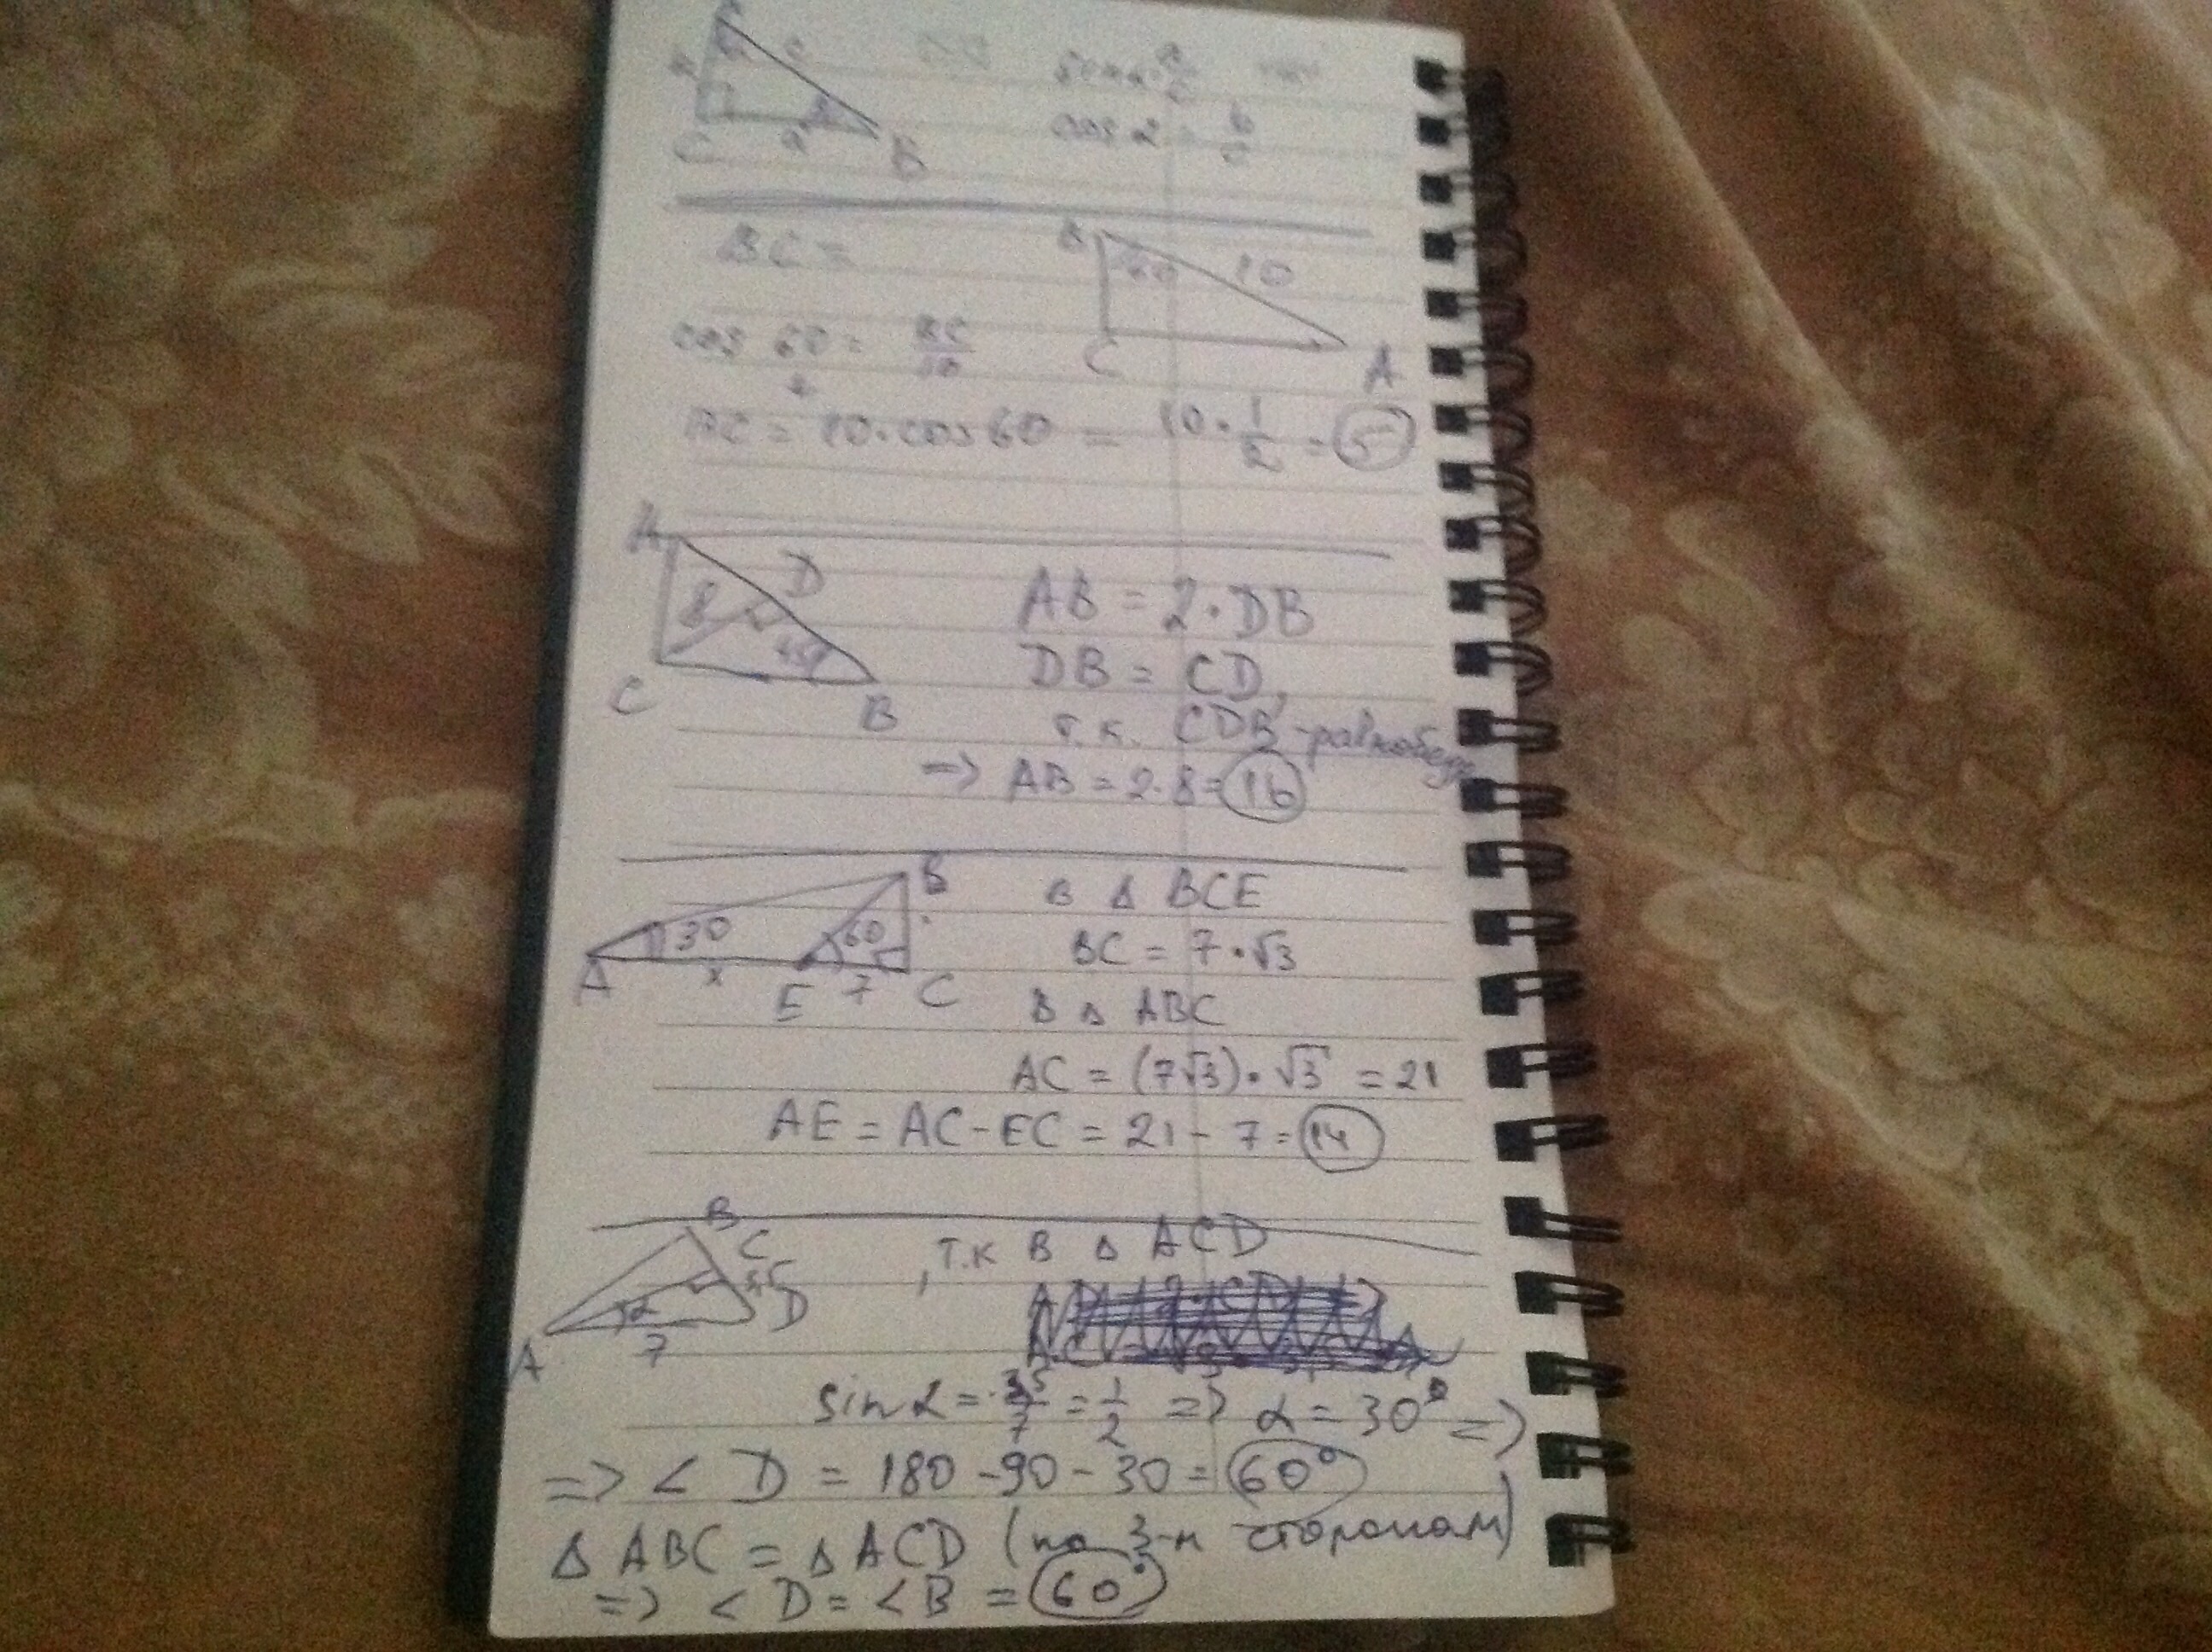 A
c
C
a
B
sin α = a/c
cos α = b/c
BC =
B
60
10
C
A
cos 60 = BC/10
BC = 10·cos60 = 10·1/2 = 5
A
D
8
45°
C
B
AB = 2·DB
DB = CD,
т.к. CDB-равнобедр
=> AB = 2·8 = 16
B
30
60
A
x
E
7
C
В Δ BCE
BC = 7·√3
В Δ ABC
AC = (7√3)·√3 = 21
AE = AC-EC = 21-7 = 14
B
C
3,5
α
D
A
7
, т.к В Δ ACD
sin α = 3,5/7 = 1/2 => α = 30° =>
=> < D = 180-90-30 = 60°
Δ ABC = Δ ACD (по 3-м сторонам)
=> < D = < B = 60°